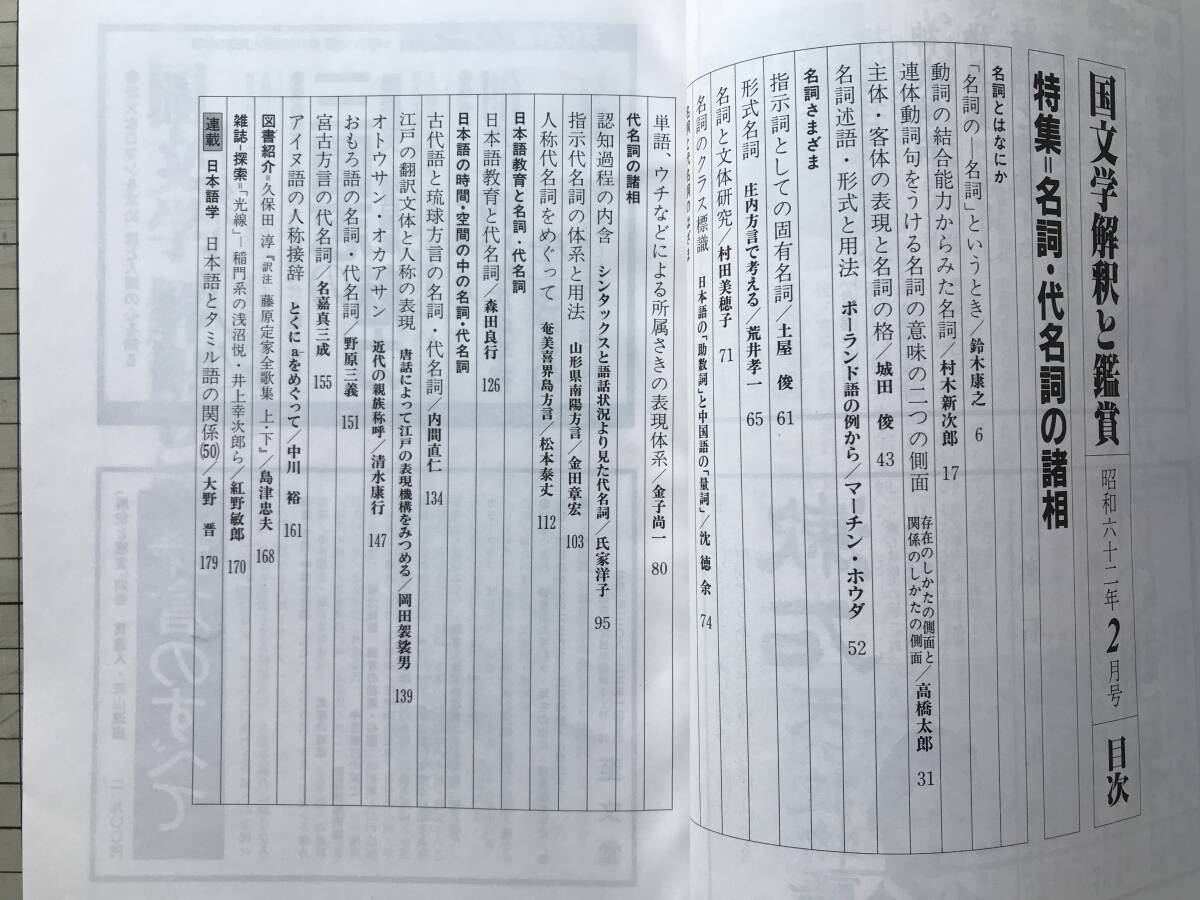 国文学解釈と鑑賞 昭和六十二年2月号 目次
特集=名詞・代名詞の諸相
名詞とはなにか
「名詞の 名詞」というとき/鈴木康之 6
動詞の結合能力からみた名詞/村木新次郎 17
連体動詞句をうける名詞の意味の二つの側面 存在のしかたの側面と関係のしかたの側面/高橋太郎 31
主体・客体の表現と名詞の格/城田 俊 43
名詞述語・形式と用法 ポーランド語の例から/マーチン・ホウダ 52
名詞さまざま
指示詞としての固有名詞/土屋 俊 61
形式名詞 庄内方言で考える/荒井孝一 65
名詞と文体研究/村田美穂子 71
名詞のクラス標識 日本語の「助数詞」と中国語の「量詞」/沈 徳余 74
名詞と代名詞のはざま
単語、ウチなどによる所属さきの表現体系/金子尚一 80
代名詞の諸相
認知過程の内含 シンタックスと語話状況より見た代名詞/氏家洋子 95
指示代名詞の体系と用法 山形県南陽方言/金田章宏 103
人称代名詞をめぐって 奄美喜界島方言/松本泰丈 112
日本語教育と名詞・代名詞
日本語教育と代名詞/森田良行 126
日本語の時間・空間の中の名詞・代名詞
古代語と琉球方言の名詞・代名詞/内間直仁 134
江戸の翻訳文体と人称の表現 唐話によって江戸の表現機構をみつめる/岡田袈裟男 139
オトウサン・オカアサン 近代の親族称呼/清水康行 147
おもろ語の名詞・代名詞/野原三義 151
宮古方言の代名詞/名嘉真三成 155
アイヌ語の人称接辞 とくにa-をめぐって/中川 裕 161
図書紹介=久保田 淳『訳注 藤原定家全歌集 上・下』/島津忠夫 168
雑誌-探索=「光線」-稲門系の浅沼悦・井上幸次郎ら/紅野敏郎 170
連載 日本語学 日本語とタミル語の関係(50)/大野 晋 179